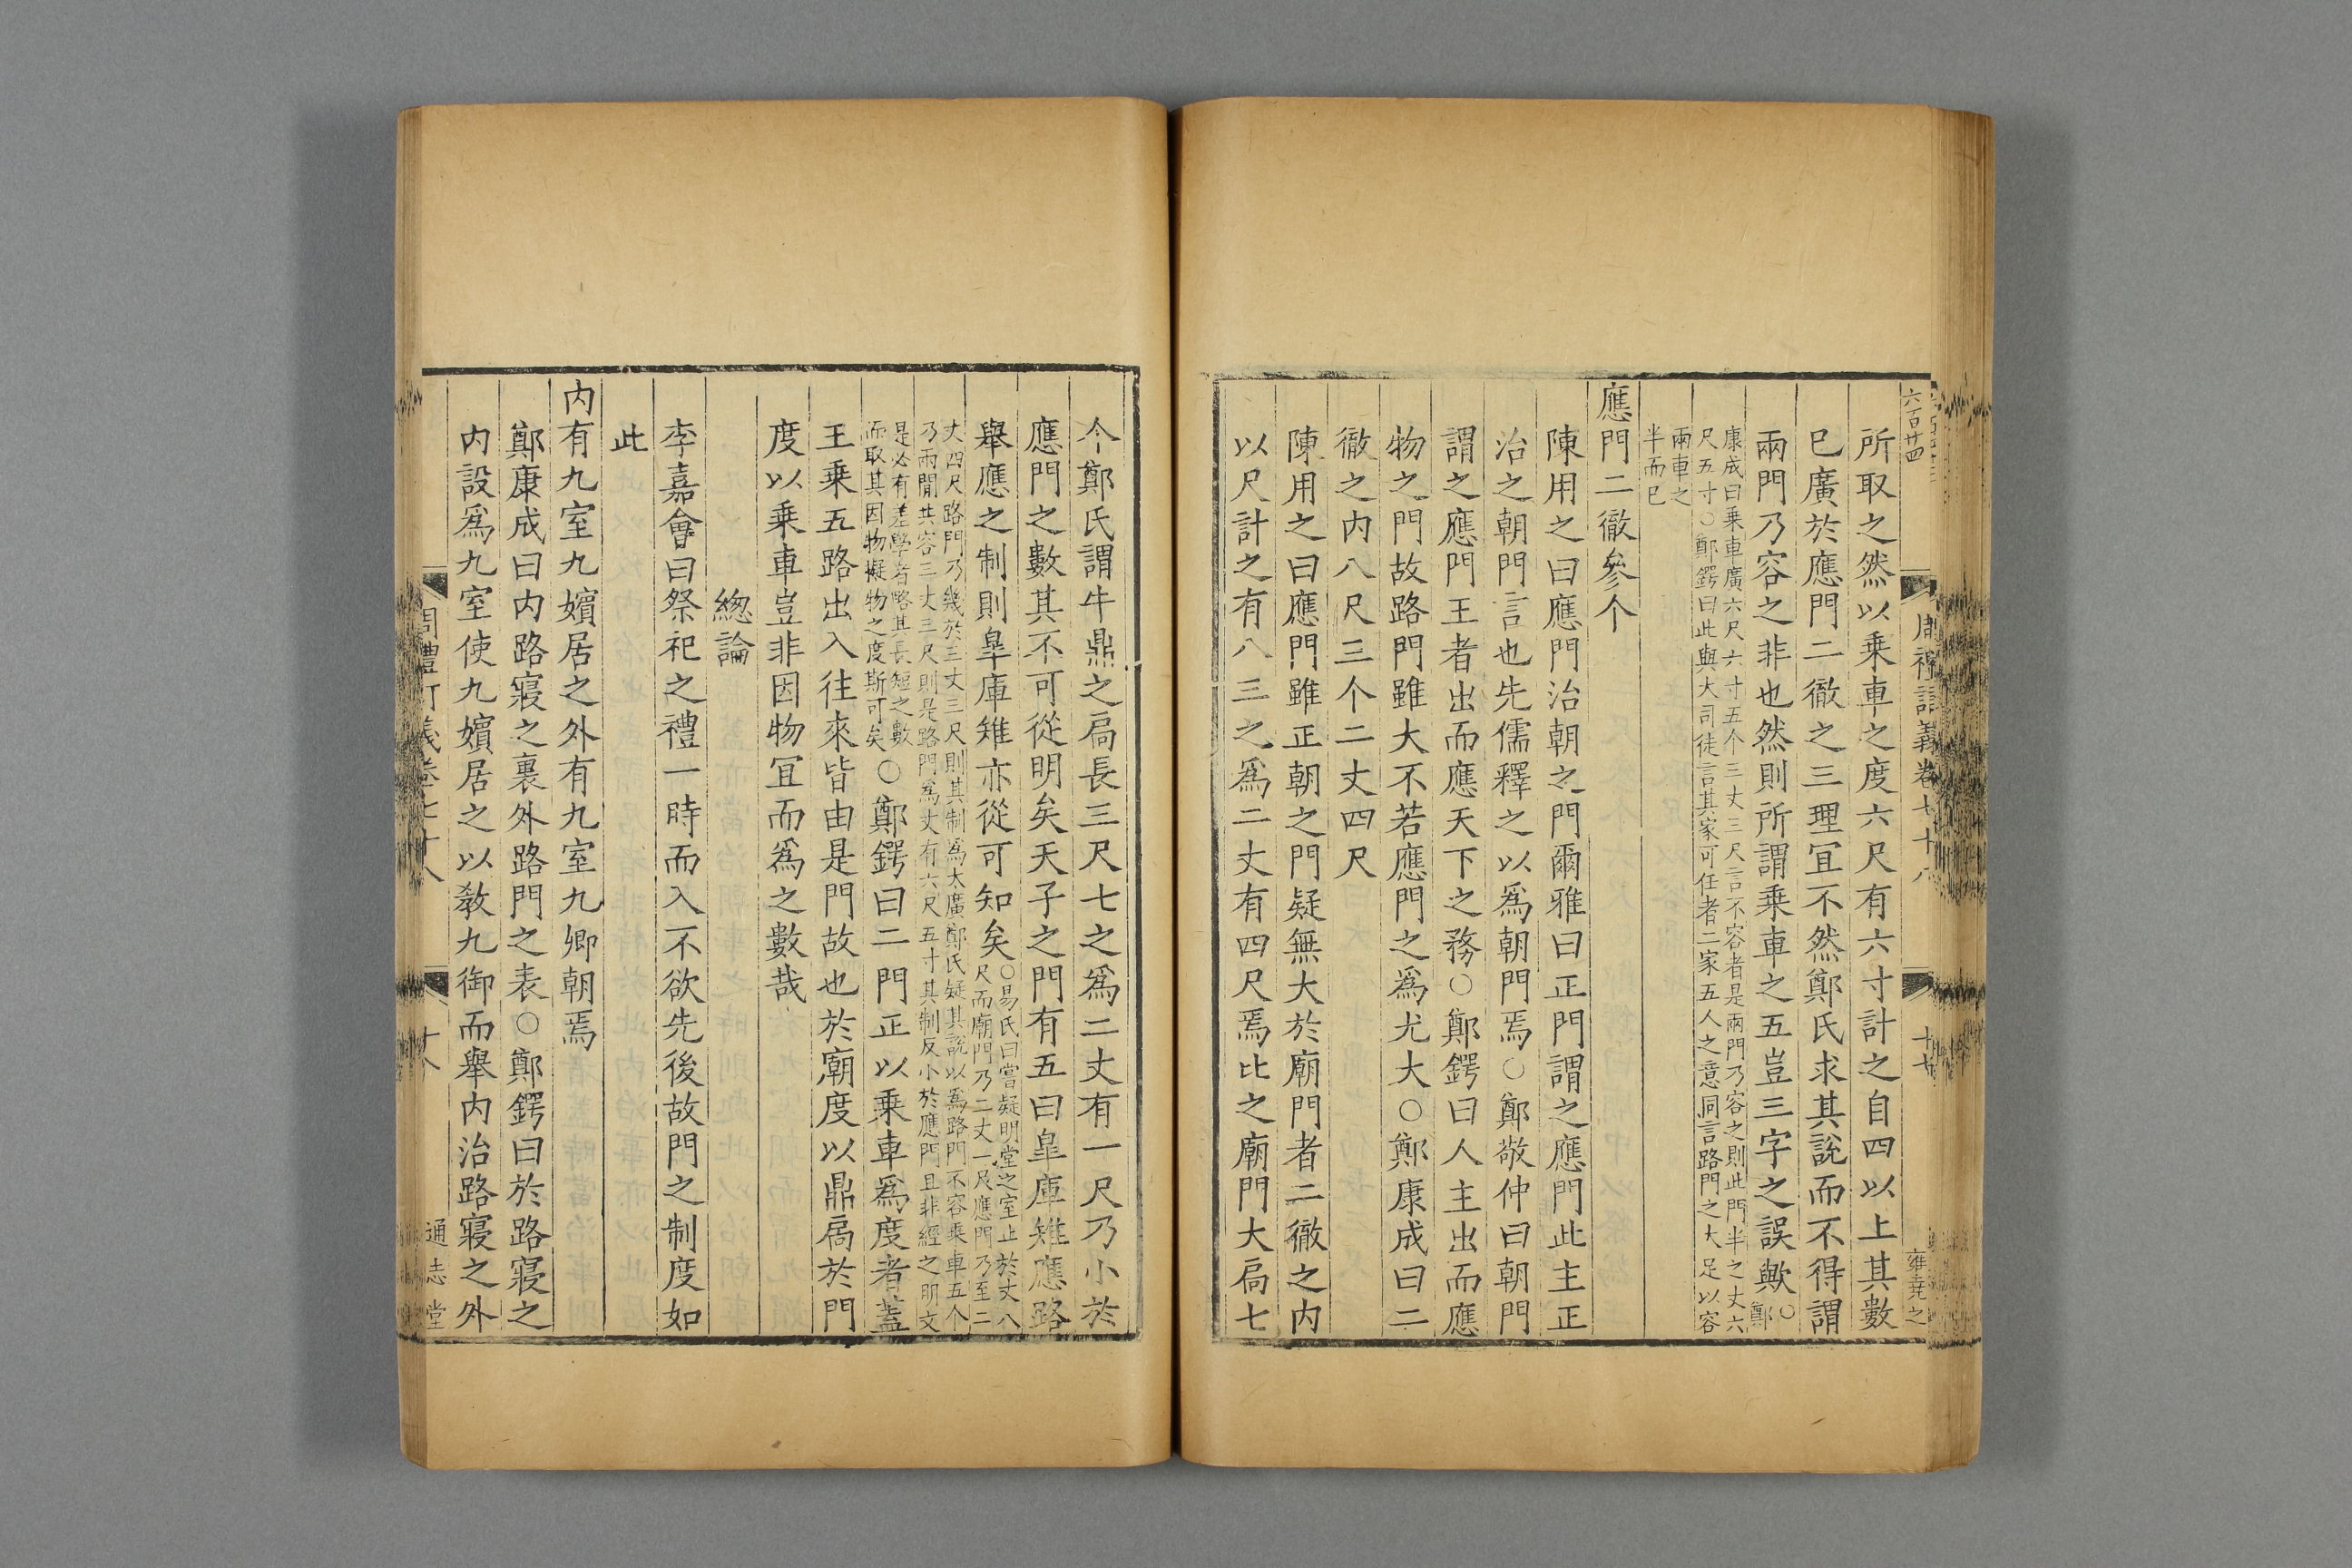 六百廿四
周禮訂義卷七十八
十七
雍堯之
所取之然以乗車之度六尺有六寸計之自四以上其數
已廣於應門二徹之三理冝不然鄭氏求其說而不得謂
兩門乃容之非也然則所謂乗車之五豈三字之誤歟○鄭
康成曰乗車廣六尺六寸五个三丈三尺言不容者是兩門乃容之則此門半之丈六
尺五寸○鄭鍔曰此與大司徒言其家可任者二家五人之意同言路門之大足以容
兩車之
半而已
應門二徹參个
陳用之曰應門治朝之門爾雅曰正門謂之應門此主正
治之朝門言也先儒釋之以爲朝門焉○鄭敬仲曰朝門
謂之應門王者出而應天下之務○鄭鍔曰人主出而應
物之門故路門雖大不若應門之爲尤大○鄭康成曰二
徹之内八尺三个二丈四尺
陳用之曰應門雖正朝之門疑無大於廟門者二徹之内
以尺計之有八三之爲二丈有四尺焉比之廟門大扃七
今鄭氏謂牛鼎之扃長三尺七之爲二丈有一尺乃小於
應門之數其不可從明矣天子之門有五曰臯庫雉應路
舉應之制則臯庫雉亦從可知矣○易氏曰嘗疑明堂之室止於丈八
尺而廟門乃二丈一尺應門乃至二
丈四尺路門乃幾於三丈三尺則其制爲太廣鄭氏疑其說以爲路門不容乗車五个
乃兩閒共容三丈三尺則是路門爲丈有六尺五寸其制反小於應門且非經之明文
是必有差學者略其長短之數
而取其因物擬物之度斯可矣○鄭鍔曰二門正以乗車爲度者蓋
王乗五路出入往來皆由是門故也於廟度以鼎扃於門
度以乗車豈非因物冝而爲之數哉
總論
李嘉會曰祭祀之禮一時而入不欲先後故門之制度如
此
内有九室九嬪居之外有九室九卿朝焉
鄭康成曰内路寢之裏外路門之表○鄭鍔曰於路寢之
内設爲九室使九嬪居之以教九御而舉内治路寢之外
周禮訂義卷七十八
十八
通志堂